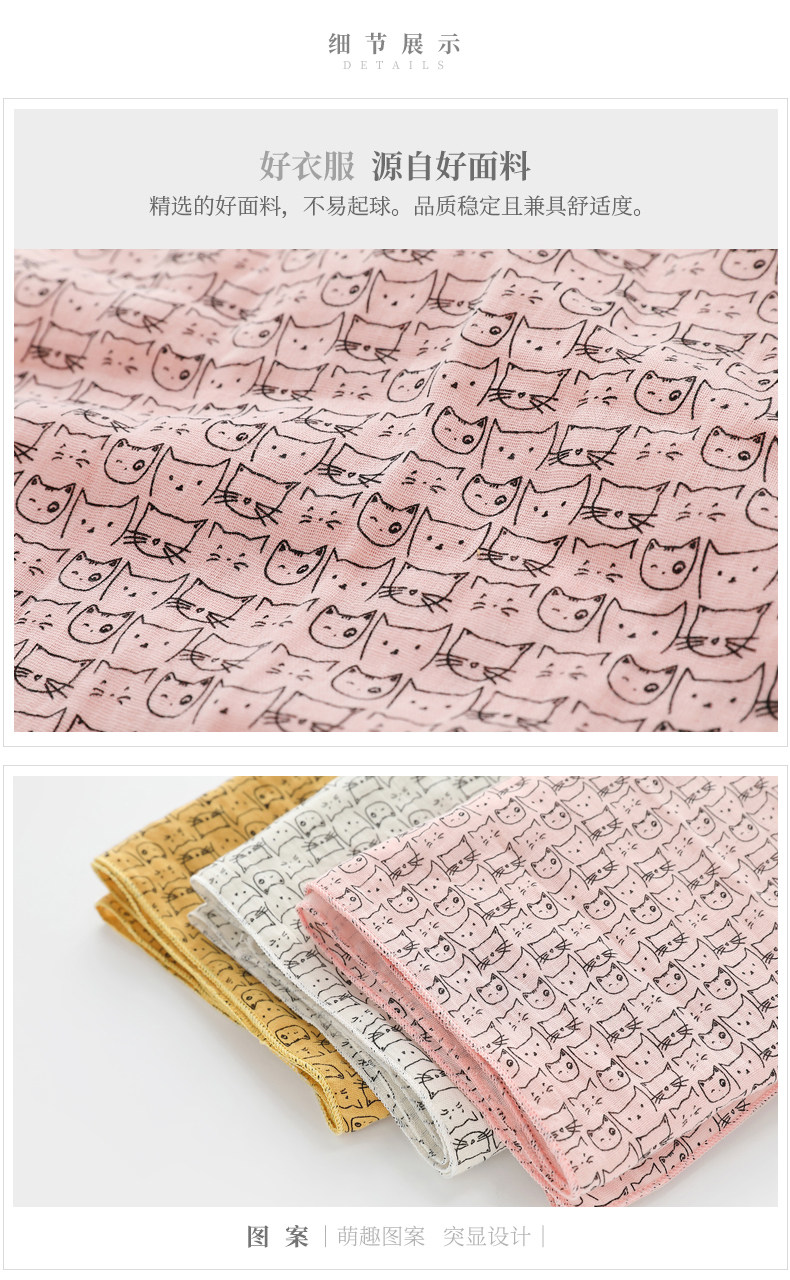 细节展示
DETAILS
好衣服 源自好面料
精选的好面料，不易起球。品质稳定且兼具舒适度。
图案｜萌趣图案 突显设计｜